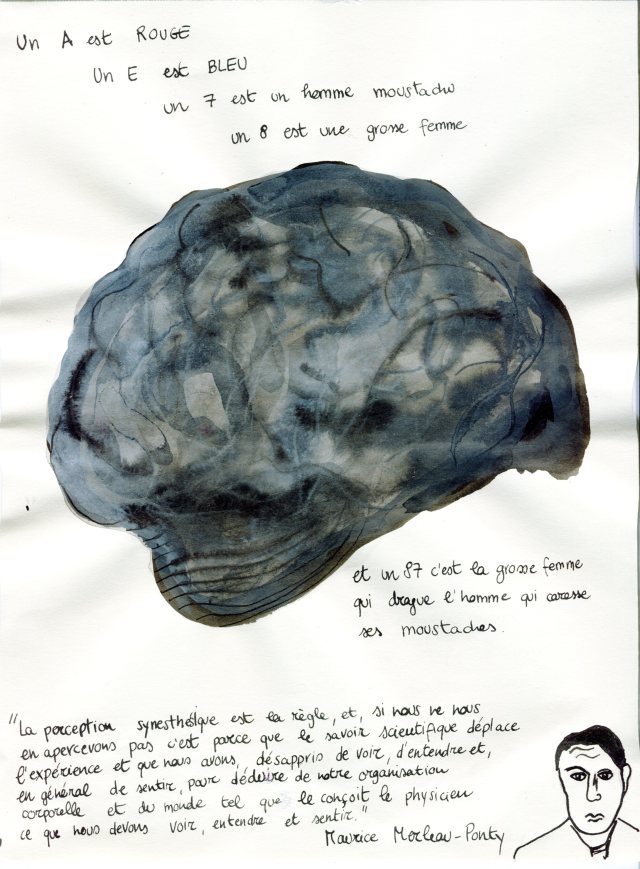 Un A est ROUGE
Un E est BLEU
un 7 est un homme moustachu
un 8 est une grosse femme
et un 87 c'est la grosse femme
qui drague l'homme qui caresse
ses moustaches.
"La perception synesthésique est la règle, et, si nous ne nous
en apercevons pas c'est parce que le savoir scientifique déplace
l'expérience et que nous avons, désappris de voir, d'entendre et,
en général de sentir, pour déduire de notre organisation
corporelle et du monde tel que le conçoit le physicien
ce que nous devons voir, entendre et sentir."
Maurice Merleau-Ponty